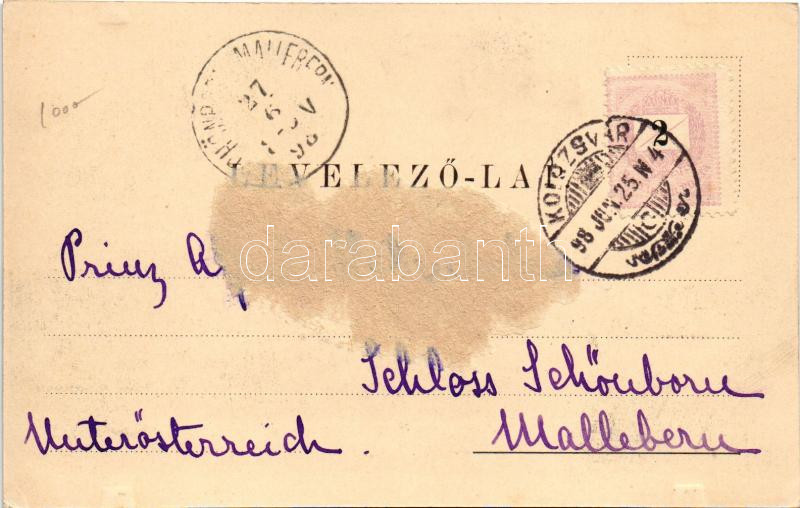 1000
MALLEBERN
27
6
98
2
KOLOZSVÁR
98 JUN. 25. N 4
LEVELEZŐ-LA
darabanth
Prinz A
Schloss Schönborn
Unterösterreich. Mallebern